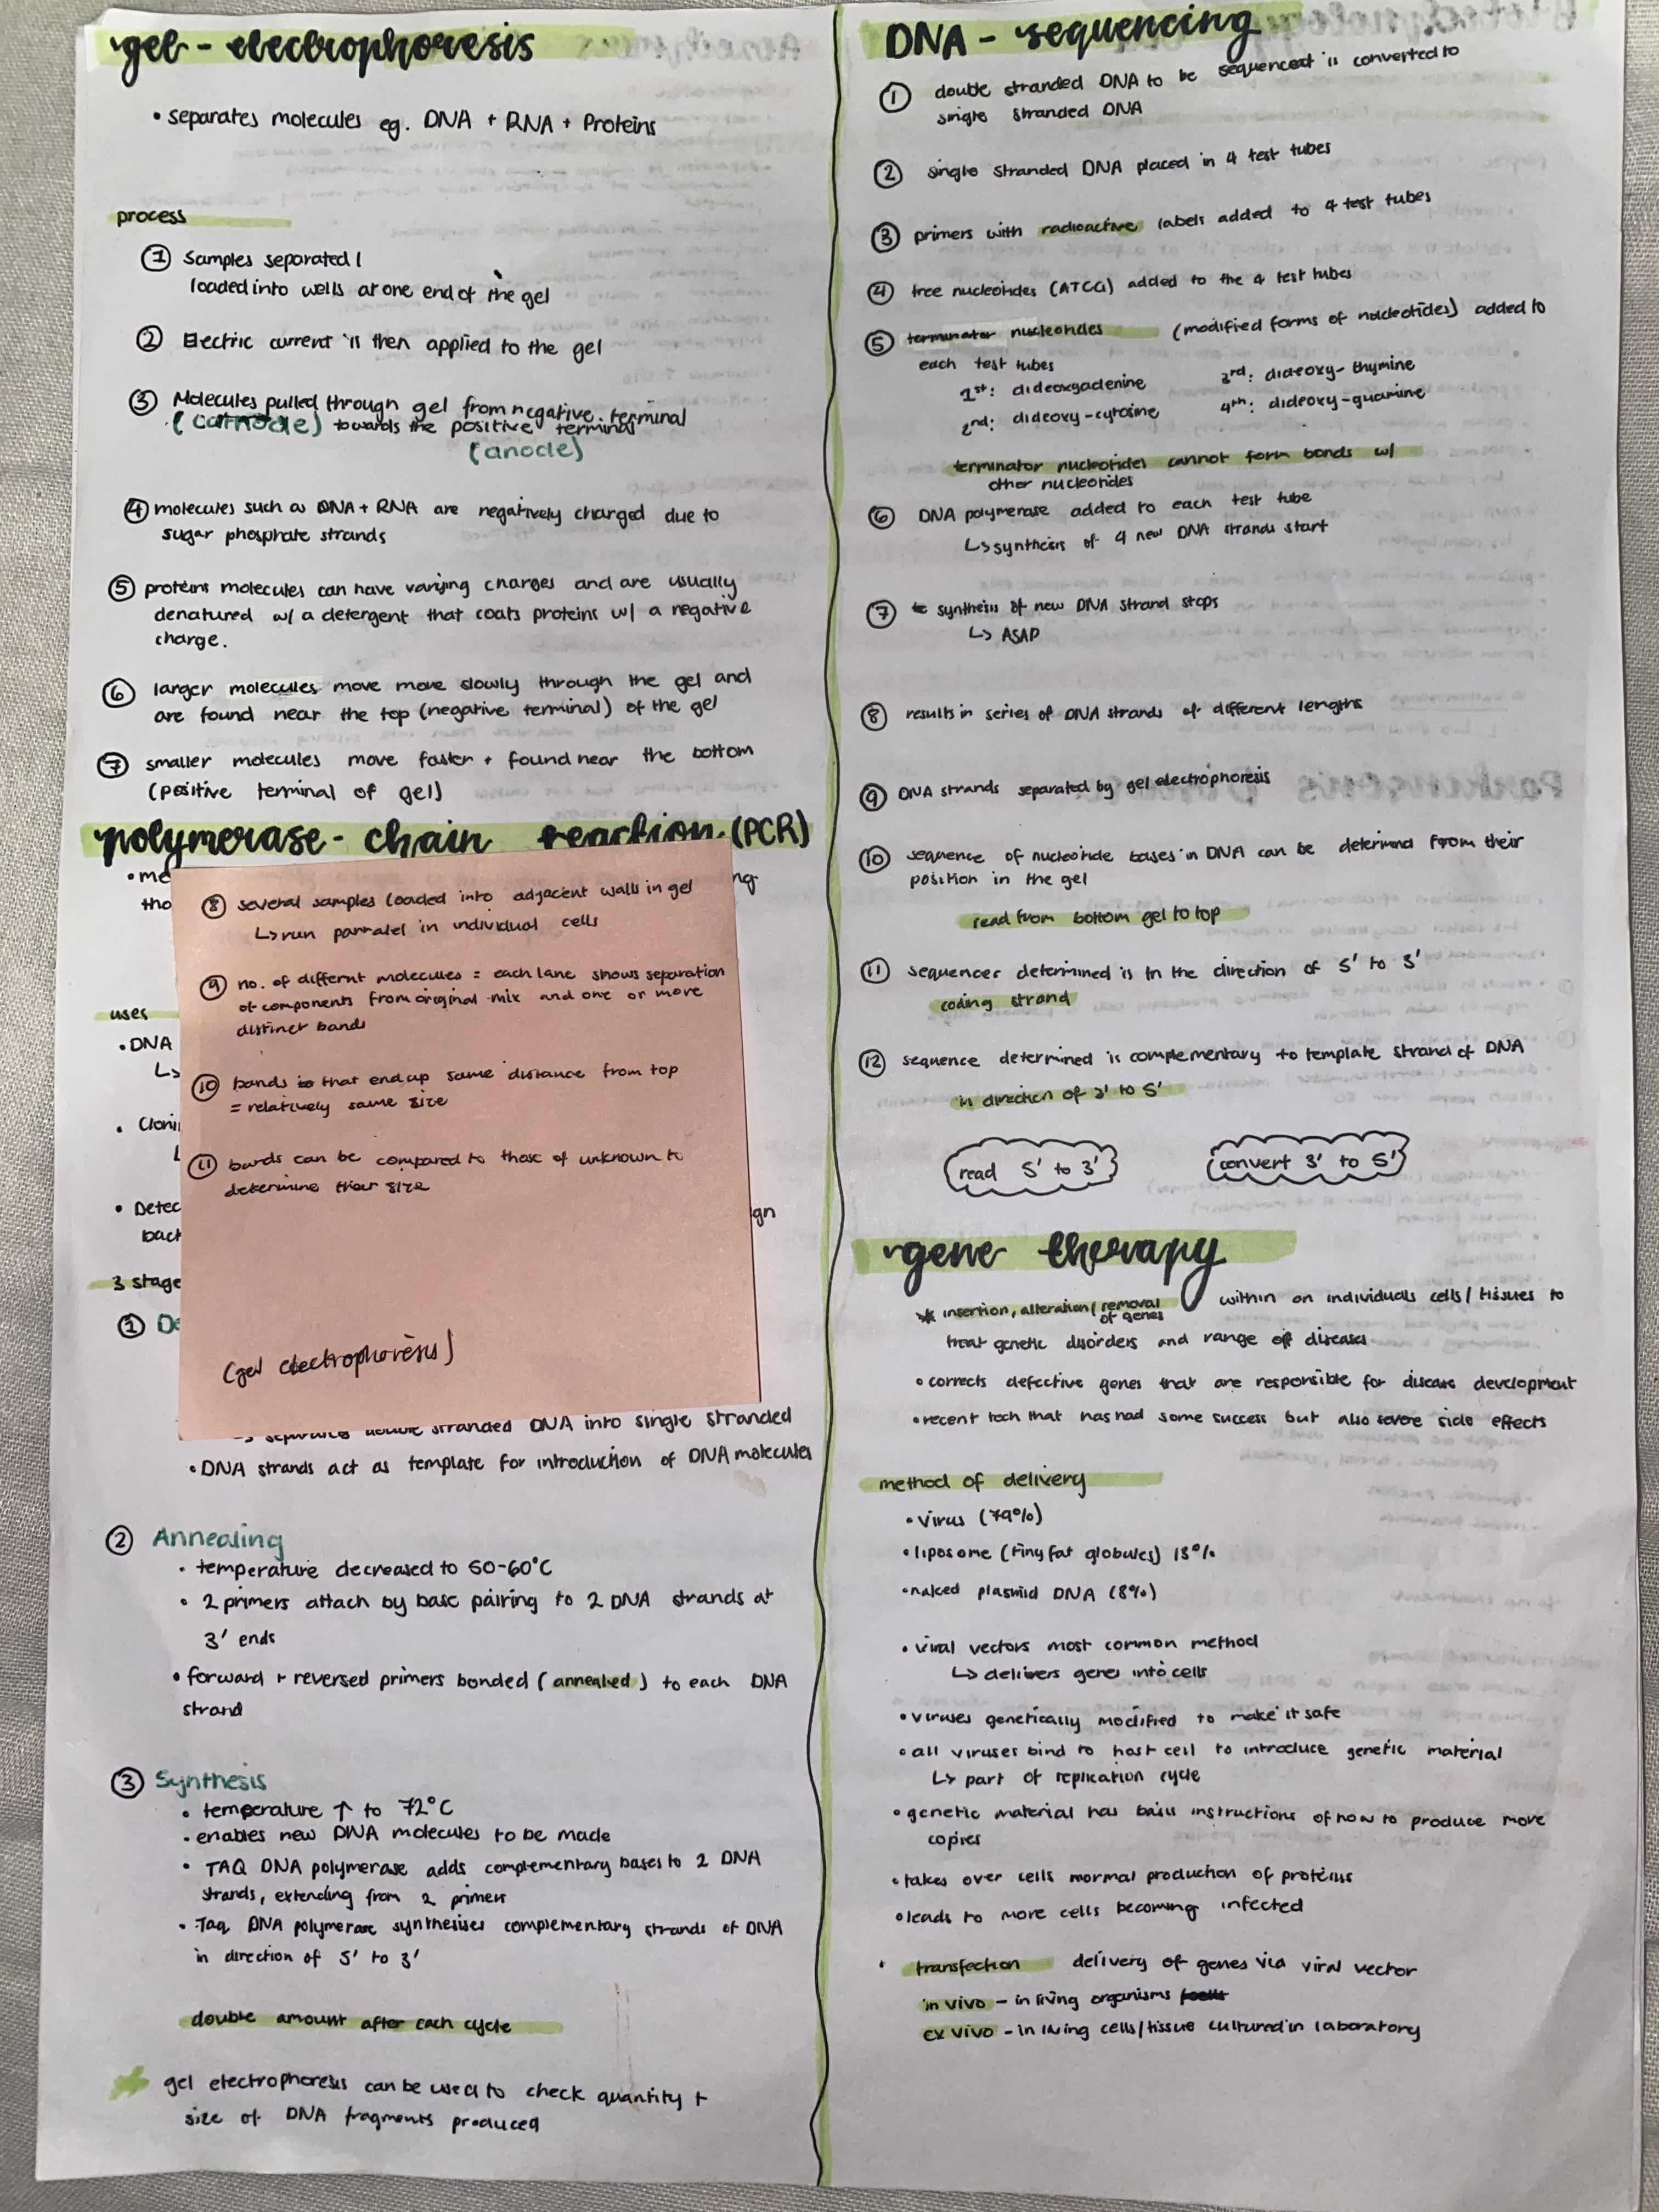 gel - electrophoresis
• separates molecules eg. DNA + RNA + Proteins
process
① Samples separated /
loaded into wells at one end of the gel
② Electric current is then applied to the gel
③ Molecules pulled through gel from negative terminal
(cathode) towards the positive terminal
(anode)
④ molecules such as DNA + RNA are negatively charged due to
sugar phosphate strands
⑤ proteins molecules can have varying charges and are usually
denatured w/ a detergent that coats proteins w/ a negative
charge.
⑥ larger molecules move move slowly through the gel and
are found near the top (negative terminal) of the gel
⑦ smaller molecules move faster + found near the bottom
(positive terminal of gel)
polymerase - chain reaction (PCR)
• me
ng
tho
⑧ several samples loaded into adjacent walls in gel
↳ run parralel in individual cells
⑨ no. of differnt molecules = each lane shows separation
of components from original mix and one or more
distinct bands
⑩ bands that end up same distance from top
= relatively same size
⑪ bands can be compared to those of unknown to
determine thier size
(gel electrophoresis)
uses
• DNA
↳
• Cloni
• Detec
ign
back
3 stage
① De
↳ separates double stranded DNA into single stranded
• DNA strands act as template for introduction of DNA molecules
② Annealing
• temperature decreased to 50-60°C
• 2 primers attach by base pairing to 2 DNA strands at
3' ends
• forward + reversed primers bonded (annealed) to each DNA
strand
③ Synthesis
• temperature ↑ to 72°C
• enables new DNA molecules to be made
• TAQ DNA polymerase adds complementary bases to 2 DNA
strands, extending from 2 primers
• Taq DNA polymerase synthesises complementary strands of DNA
in direction of 5' to 3'
double amount after each cycle
gel electrophoresis can be used to check quantity +
size of DNA fragments produced
DNA - sequencing
① double stranded DNA to be sequenced is converted to
single stranded DNA
② single stranded DNA placed in 4 test tubes
③ primers with radioactive labels added to 4 test tubes
④ free nucleotides (ATCG) added to the 4 test tubes
⑤ terminator nucleotides (modified forms of nucleotides) added to
each test tubes
1st: dideoxyadenine 3rd: dideoxy-thymine
2nd: dideoxy-cytosine 4th: dideoxy-guanine
terminator nucleotides cannot form bonds w/
other nucleotides
⑥ DNA polymerase added to each test tube
↳ synthesis of 4 new DNA strands start
⑦ synthesis of new DNA strand stops
↳ ASAP
⑧ results in series of DNA strands of different lengths
⑨ DNA strands separated by gel electrophoresis
⑩ sequence of nucleotide bases in DNA can be determind from their
position in the gel
read from bottom gel to top
⑪ sequencer determined is in the direction of 5' to 3'
coding strand
⑫ sequence determined is complementary to template strand of DNA
in direction of 3' to 5'
read 5' to 3' convert 3' to 5'
gene therapy
* insertion, alteration / removal of genes within an individuals cells / tissues to
treat genetic disorders and range of diseases
• corrects defective genes that are responsible for disease development
• recent tech that has had some success but also severe side effects
method of delivery
• virus (79%)
• liposome (tiny fat globules) 13%
• naked plasmid DNA (8%)
• viral vectors most common method
↳ delivers genes into cells
• viruses genetically modified to make it safe
• all viruses bind to host cell to introduce genetic material
↳ part of replication cycle
• genetic material has basis instructions of how to produce more
copies
• takes over cells normal production of proteins
• leads to more cells becoming infected
• transfection delivery of genes via viral vector
in vivo - in living organisms
ex vivo - in living cells/tissue cultured in laboratory